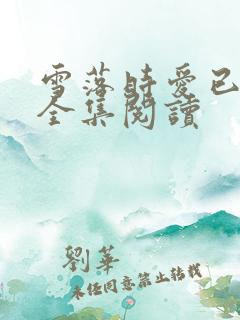 雪落時愛已
全集閱讀
劉華
未經同意禁止轉載